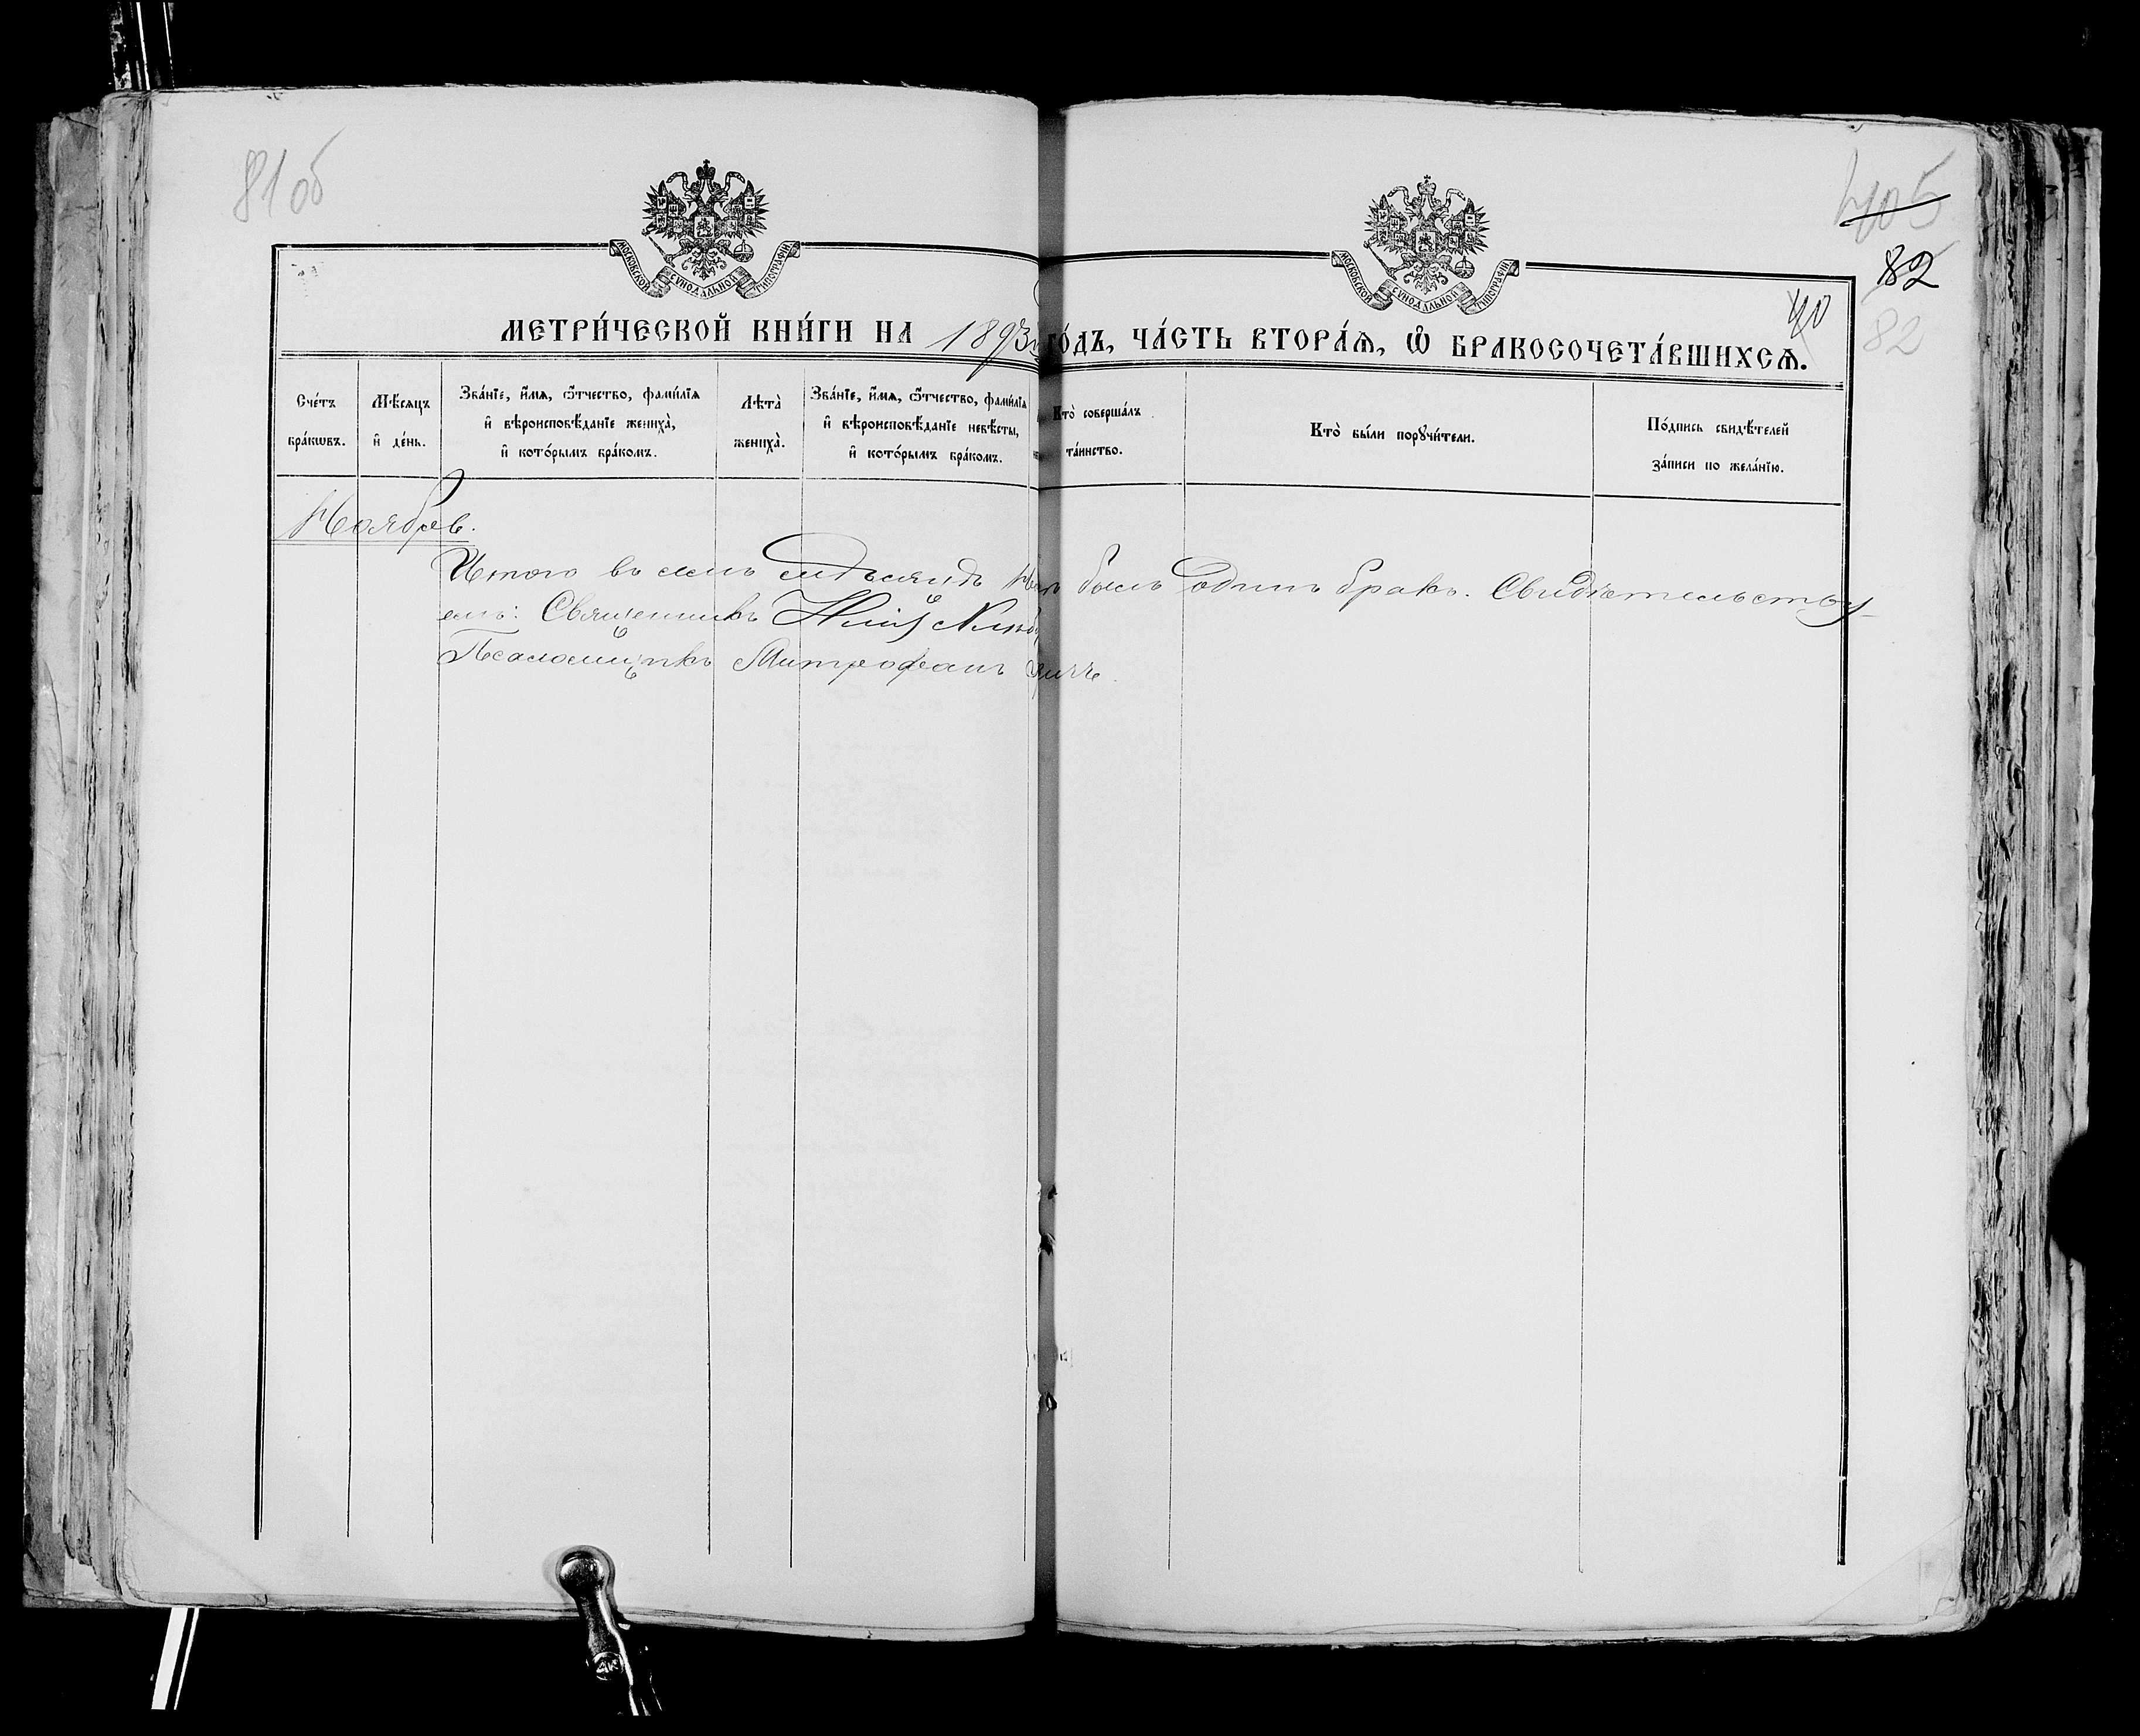 81 об
405
82
82
40
МОСКОВСКОЙ СУНОДАЛЬНОЙ ТИПОГРАФІИ
МОСКОВСКОЙ СУНОДАЛЬНОЙ ТИПОГРАФІИ
МЕТРИ́ЧЕСКОЙ КНИ́ГИ НА 1893 ГО́ДЪ, ЧА́СТЬ ВТОРА́Ѧ, Ѡ҆ БРАКОСОЧЕТА́ВШИХСѦ.
Сче́тъ
бра́кѡвъ.
Мѣ́сяцъ
и҆ де́нь.
Зва́нїе, и҆́мѧ, ѻ҆́тчество, фами́лїѧ
и҆ вѣроисповѣ́данїе жениха̀,
и҆ кото́рымъ бра́комъ.
Лѣта̀
жениха̀.
Зва́нїе, и҆́мѧ, ѻ҆́тчество, фами́лїѧ
и҆ вѣроисповѣ́данїе невѣ́сты,
и҆ кото́рымъ бра́комъ.
Кто̀ соверша́лъ
та́инство.
Кто̀ бы́ли порꙋчи́тели.
По́дпись свидѣ́телей
за́писи по жела́нїю.
Ноябрь.
Итого въ семъ мѣсяцѣ былъ одинъ бракъ. Свидѣтельству
емъ: Священникъ
Псаломщикъ Митрофанъ